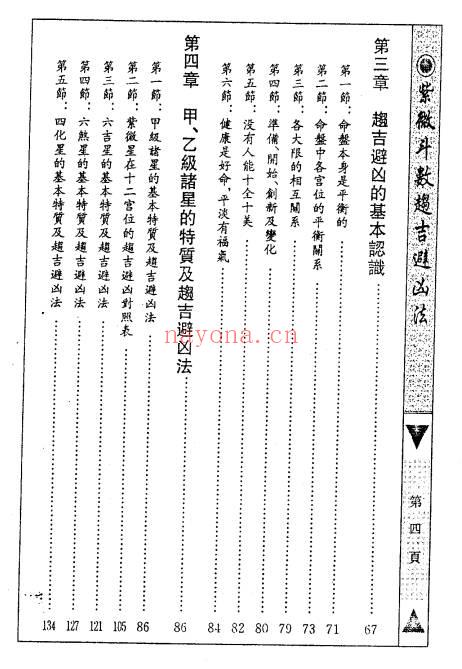 紫微斗數趨吉避凶法
第四頁
第三章 趨吉避凶的基本認識 67
第一節：命盤本身是平衡的 71
第二節：命盤中各宮位的平衡關系 73
第三節：各大限的相互關系 79
第四節：準備、開始、創新及變化 80
第五節：沒有人能十全十美 82
第六節：健康是好命，平淡有福氣 84
第四章 甲、乙級諸星的特質及趨吉避凶法 86
第一節：甲級諸星的基本特質及趨吉避凶法 86
第二節：紫微星在十二宮位的趨吉避凶對照表 105
第三節：六吉星的基本特質及趨吉避凶法 121
第四節：六煞星的基本特質及趨吉避凶法 127
第五節：四化星的基本特質及趨吉避凶法 134
nayona.cn